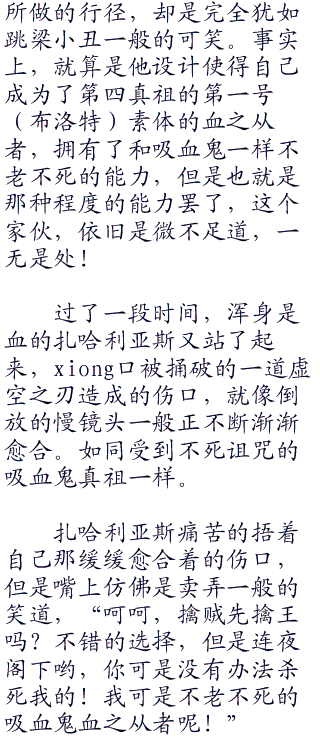 所做的行径，却是完全犹如
跳梁小丑一般的可笑。事实
上，就算是他设计使得自己
成为了第四真祖的第一号
（布洛特）素体的血之从
者，拥有了和吸血鬼一样不
老不死的能力，但是也就是
那种程度的能力罢了，这个
家伙，依旧是微不足道，一
无是处！
过了一段时间，浑身是
血的扎哈利亚斯又站了起
来，xiong口被捅破的一道虚
空之刃造成的伤口，就像倒
放的慢镜头一般正不断渐渐
愈合。如同受到不死诅咒的
吸血鬼真祖一样。
扎哈利亚斯痛苦的捂着
自己那缓缓愈合着的伤口，
但是嘴上仿佛是卖弄一般的
笑道，“呵呵，擒贼先擒王
吗？不错的选择，但是连夜
阁下哟，你可是没有办法杀
死我的！我可是不老不死的
吸血鬼血之从者呢！”